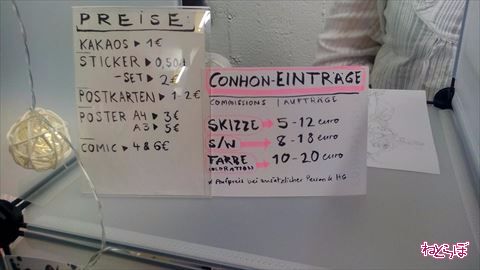 PREISE:
KAKAOS ▸ 1€
STICKER ▸ 0,50€
-SET ▸ 2€
POSTKARTEN ▸ 1-2€
POSTER A4 ▸ 3€
A3 ▸ 5€
COMIC ▸ 4&6€
CONHON-EINTRÄGE
COMMISSIONS | AUFTRÄGE
SKIZZE → 5-12 euro
S/W → 8-18 euro
FARBE → 10-20 euro
Aufpreis bei zusätzlicher Person & HG
ねとらぼ